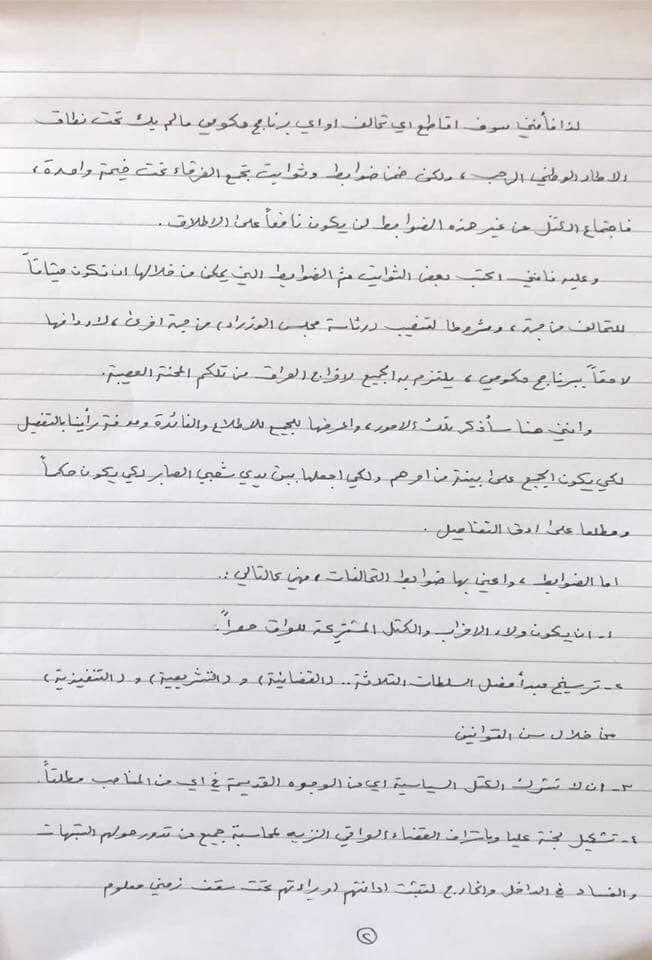 لذا فأنني سوف اقاطع اي تحالف او اي برنامج حكومي مالم يك تحت نطاق
الاطار الوطني الرحب ، ولكن ضمن ضوابط وثوابت تجمع الفرقاء تحت خيمة واحدة ،
فاجتماع الكتل من غير هذه الضوابط لن يكون نافعاً على الاطلاق .
وعليه فانني اكتب بعض الثوابت ثم الضوابط التي يمكن من خلالها ان تكون ميثاقاً
للتحالف من جهة ، وشروطا لتنصيب (رئاسة مجلس الوزراء) من جهة اخرى ، لاردافها
لاحقاً ببرنامج حكومي ، يلتزم به الجميع لاخراج العراق من تلكم المحنة العصيبة.
وانني هنا سأذكر تلك الامور، واعرضها للجميع للاطلاع والفائدة ومعرفة رأينا بالتفصيل
لكي يكون الجميع على بينة من امرهم ولكي اجعلها بين يدي شعبي الصابر لكي يكون حكماً
ومطلعا على ادق التفاصيل .
اما الضوابط ، واعني بها ضوابط التحالفات ، فهي كالتالي :.
١- ان يكون ولاء الاحزاب والكتل المشتركة للعراق حصراً .
٢- ترسيخ مبدأ فصل السلطات الثلاثة .. (القضائية) و (التشريعية) و (التنفيذية)
من خلال سن القوانين
٣- ان لا تشرك الكتل السياسية اي من الوجوه القديمة في اي من المناصب مطلقاً .
٤- تشكيل لجنة عليا وباشراف القضاء العراقي النزيه لمحاسبة جميع من تدور حولهم الشبهات
والفساد في الداخل والخارج لتثبت ادانتهم او براءتهم تحت سقف زمني معلوم
٢